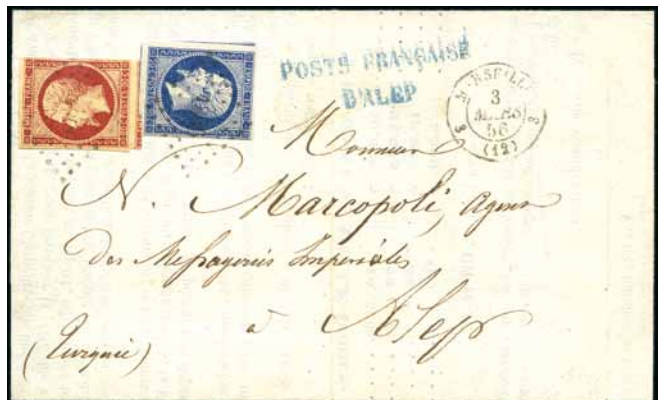 POSTE FRANÇAISE
D'ALEP
MARSEILLE
3
MARS
56
(12)
Monsieur
N. Marcopoli, Agent
des Messageries Impériales
à Alep
(Turquie)